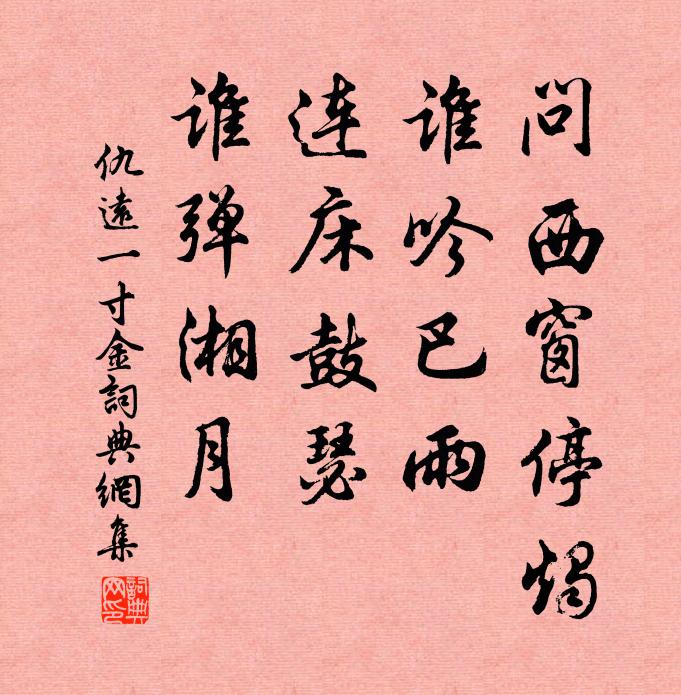 问西窗停烛
谁吟巴雨
连床鼓瑟
谁弹湘月
仇遠一寸金詞典網集
詞典网印